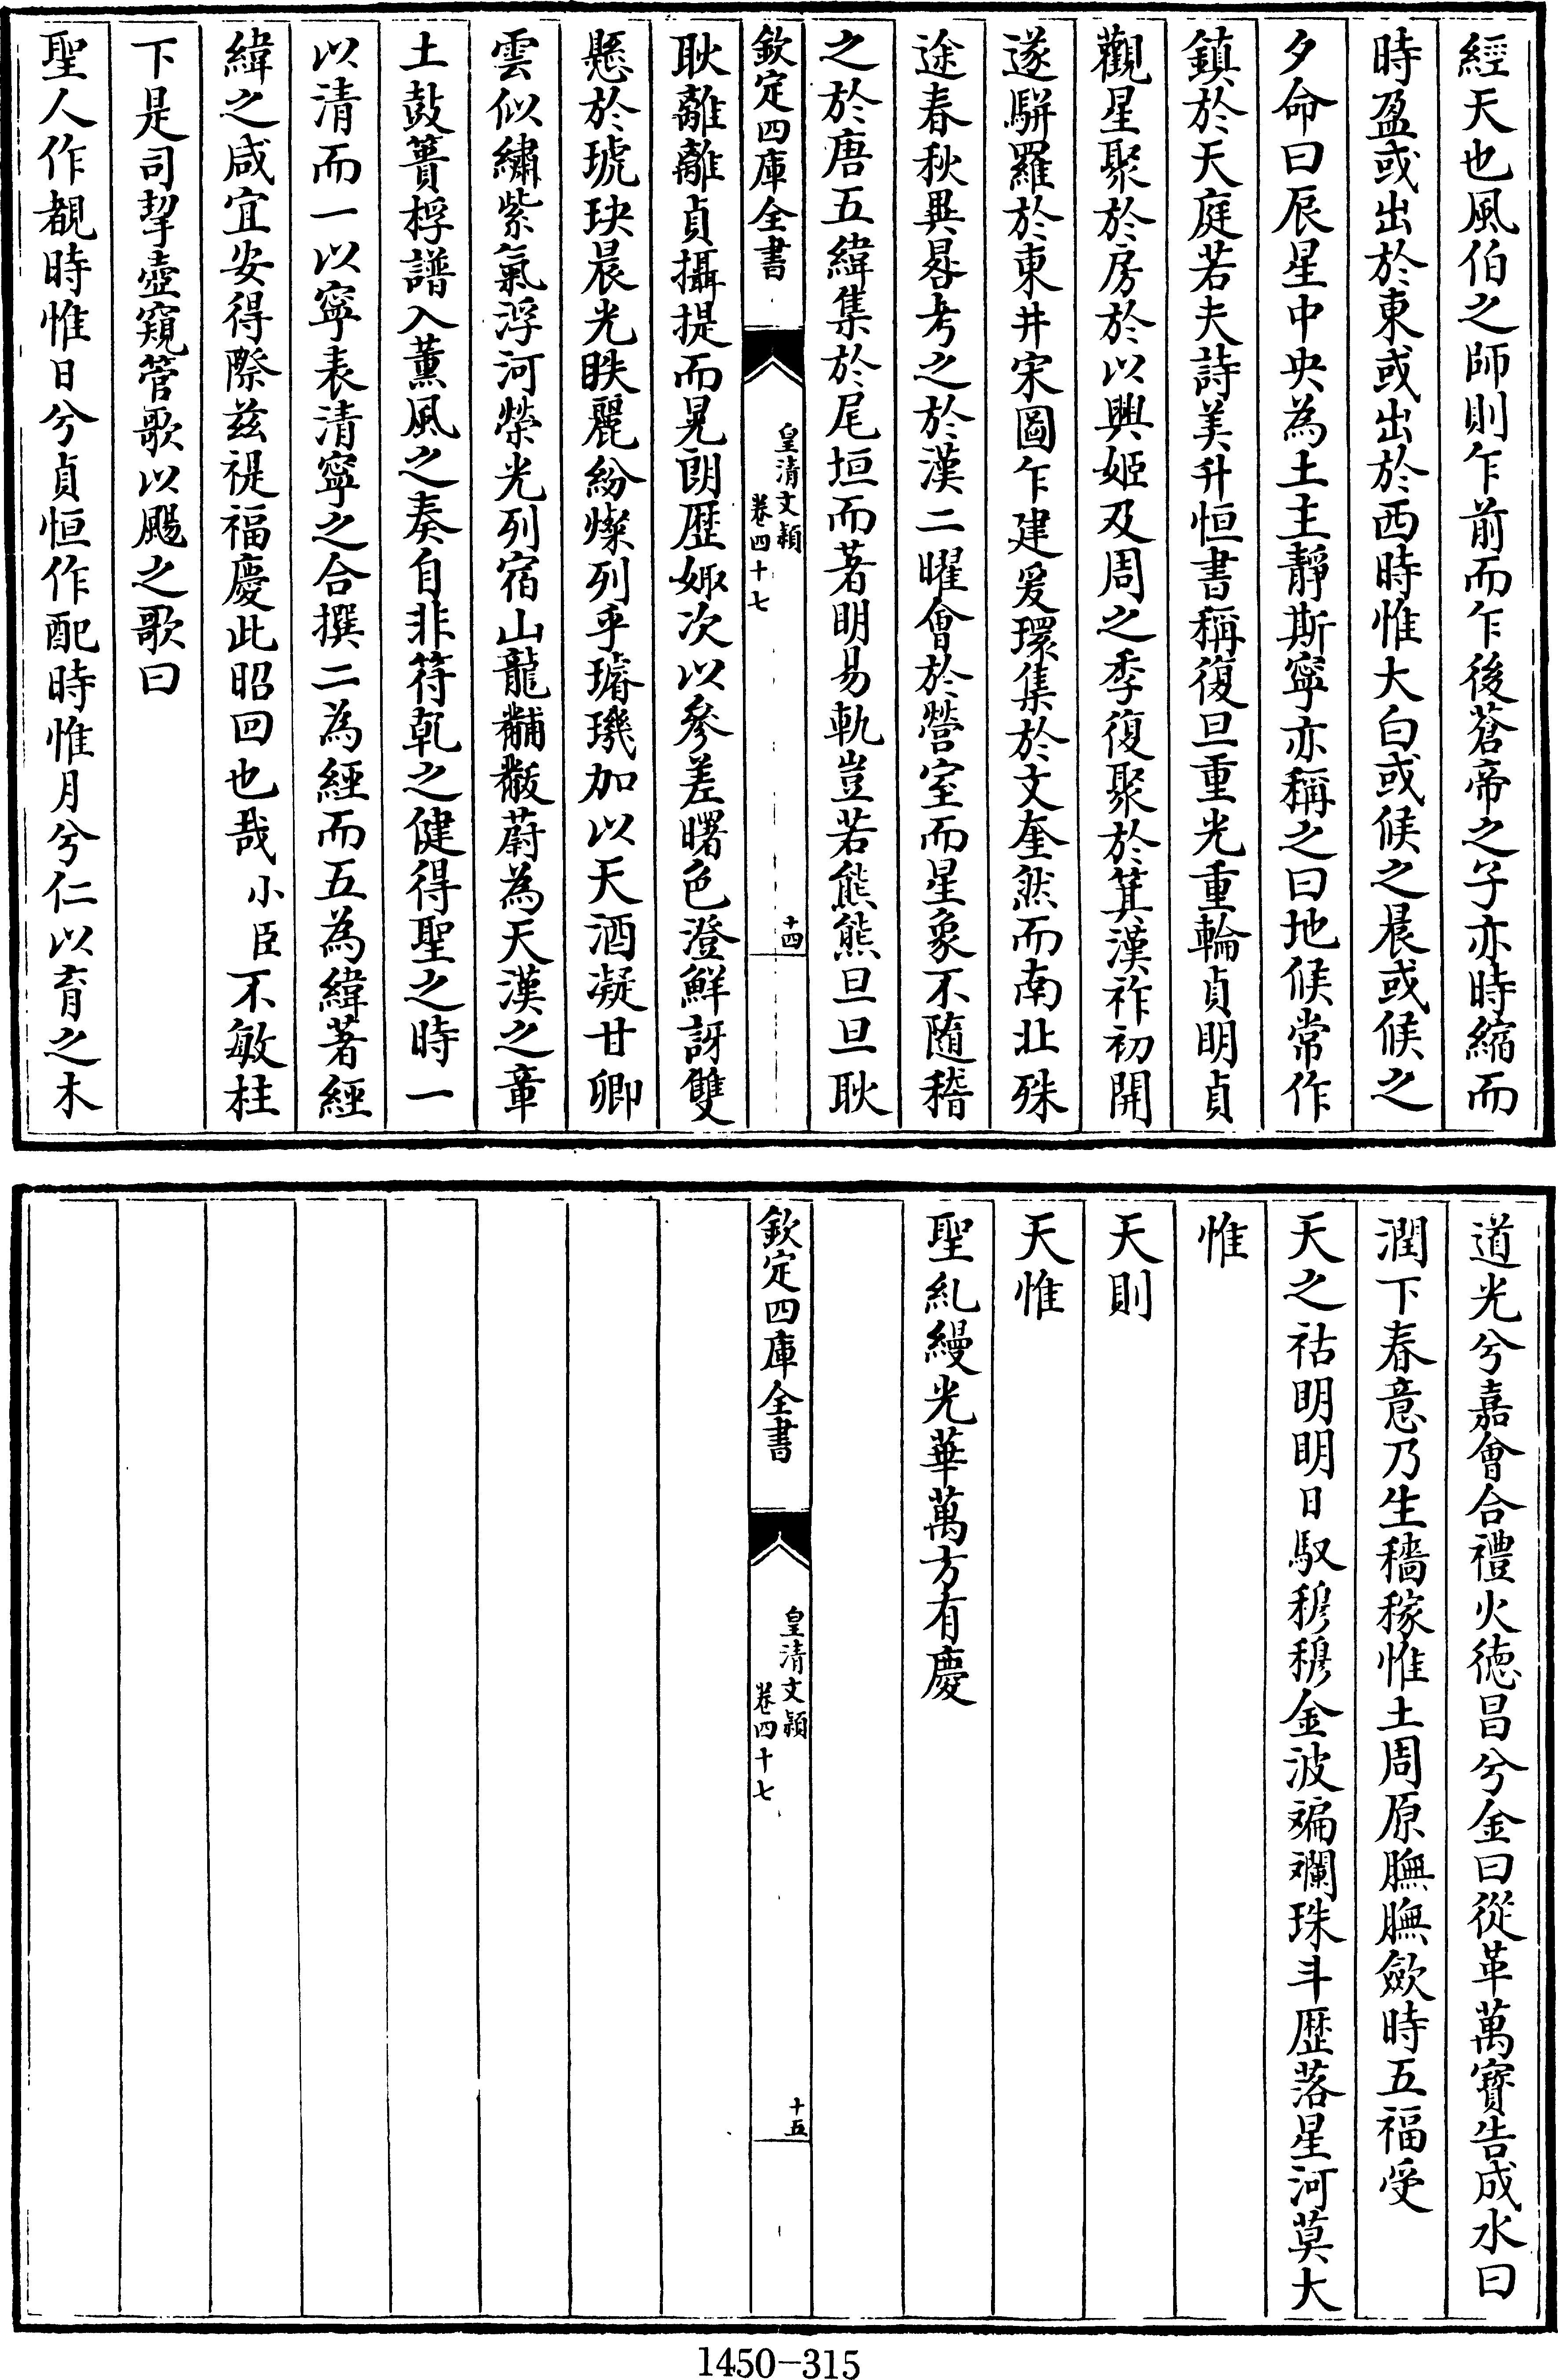 經天也風伯之師則乍前而乍後蒼帝之子亦時縮而
時盈或出於東或出於西時惟大白或候之晨或候之
夕命曰辰星中央為土主靜斯寧亦稱之曰地候常作
鎮於天庭若夫詩美升恒書稱復旦重光重輪貞明貞
觀星聚於房於以興姬及周之季復聚於箕漢祚初開
遂駢羅於東井宋圖乍建爰環集於文奎然而南北殊
途春秋異晷考之於漢二曜會於營室而星象不隨稽
之於唐五緯集於尾垣而著明易軌豈若熊熊旦旦耿
欽定四庫全書
皇清文穎
卷四十七
十四
耿離離貞攝提而晃朗歷娵次以參差曙色澄鮮訝雙
懸於琥玦晨光昳麗紛燦列乎璿璣加以天酒凝甘卿
雲似繡紫氣浮河榮光列宿山龍黼黻蔚為天漢之章
土鼓蕢桴譜入薰風之奏自非符乾之健得聖之時一
以清而一以寧表清寧之合撰二為經而五為緯著經
緯之咸宜安得際茲禔福慶此昭回也哉小臣不敏柱
下是司挈壺窺管歌以颺之歌曰
聖人作覩時惟日兮貞恒作配時惟月兮仁以育之木
道光兮嘉會合禮火德昌兮金曰從革萬寶告成水曰
潤下春意乃生穡稼惟土周原膴膴歛時五福受
天之祜明明日馭穆穆金波斒斕珠斗歷落星河莫大
惟
天則
天惟
聖糺縵光華萬方有慶
欽定四庫全書
皇清文穎
卷四十七
十五
1450-315